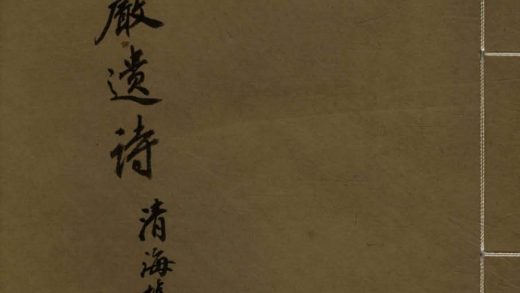 嚴遗诗
清海